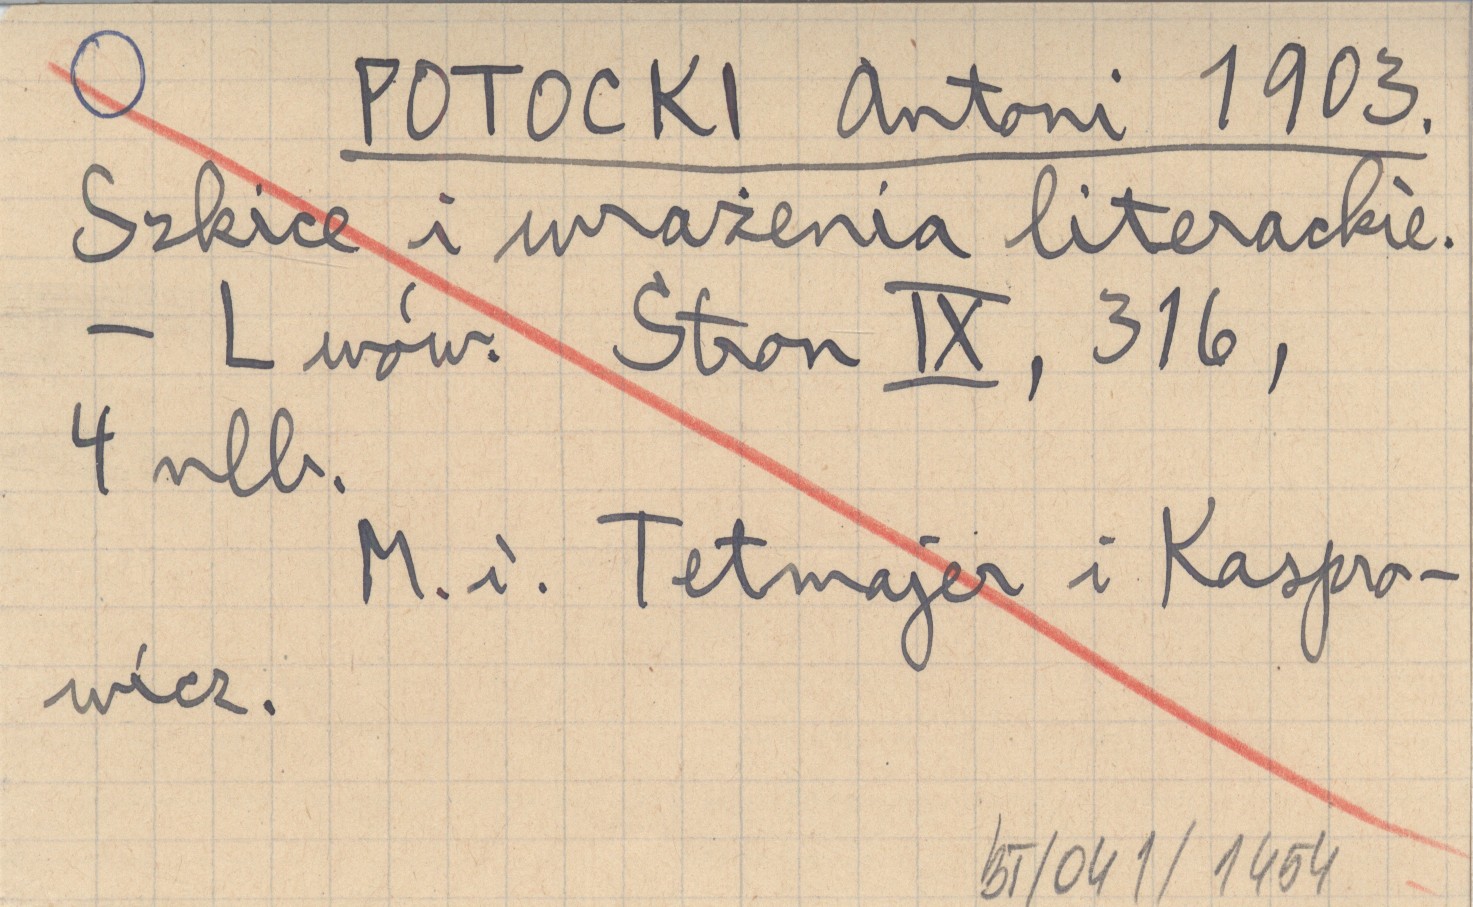 POTOCKI Antoni 1903.
Szkice i wrażenia literackie.
– Lwów. Stron IX, 316,
4 nlb.
M.i. Tetmajer i Kaspro-
wicz.
/041/ 1454